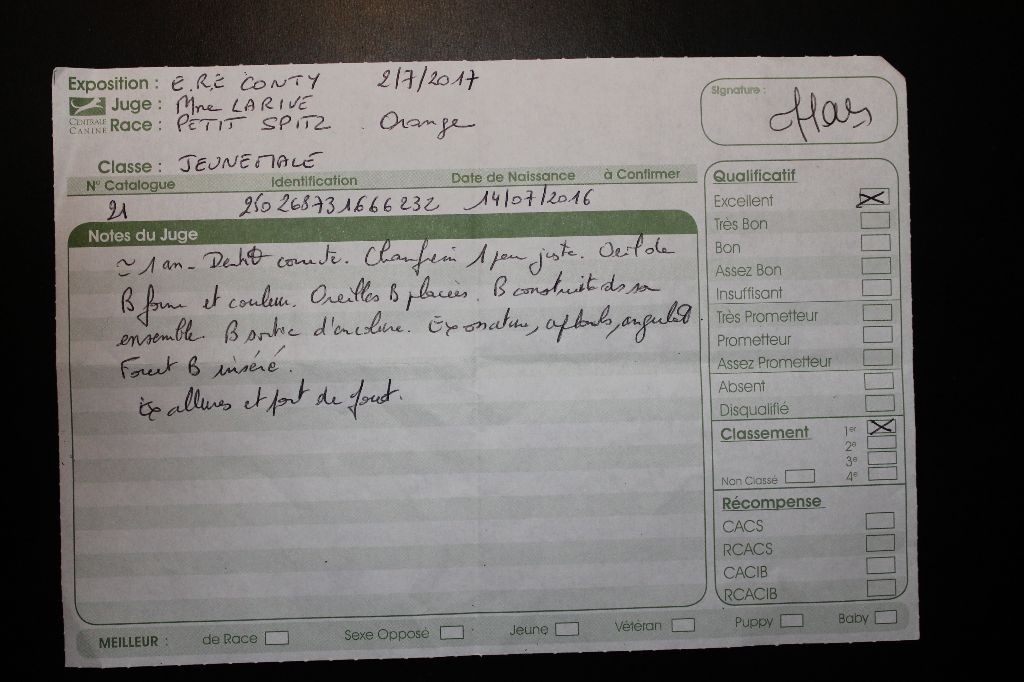 Exposition : E.RE CONTY 2/7/2017
Juge : Mme LARIVE
CENTRALE CANINE
Race : PETIT SPITZ Orange
Signature :
Classe : JEUNE MALE
N° Catalogue Identification Date de Naissance à Confirmer
21 250268731666232 14/07/2016
Notes du Juge
≃ 1 an - Dentit correcte. Chanfrein 1 peu juste. Oeil de
B forme et couleur. Oreilles B placées. B construite ds son
ensemble. B sortie d'encolure. Ex ossature, aplombs, angulat.
Fouet B inséré.
Ex allures et port de fouet.
Qualificatif
Excellent
Très Bon
Bon
Assez Bon
Insuffisant
Très Prometteur
Prometteur
Assez Prometteur
Absent
Disqualifié
Classement
1er
2e
3e
Non Classé 4e
Récompense
CACS
RCACS
CACIB
RCACIB
MEILLEUR : de Race Sexe Opposé Jeune Vétéran Puppy Baby